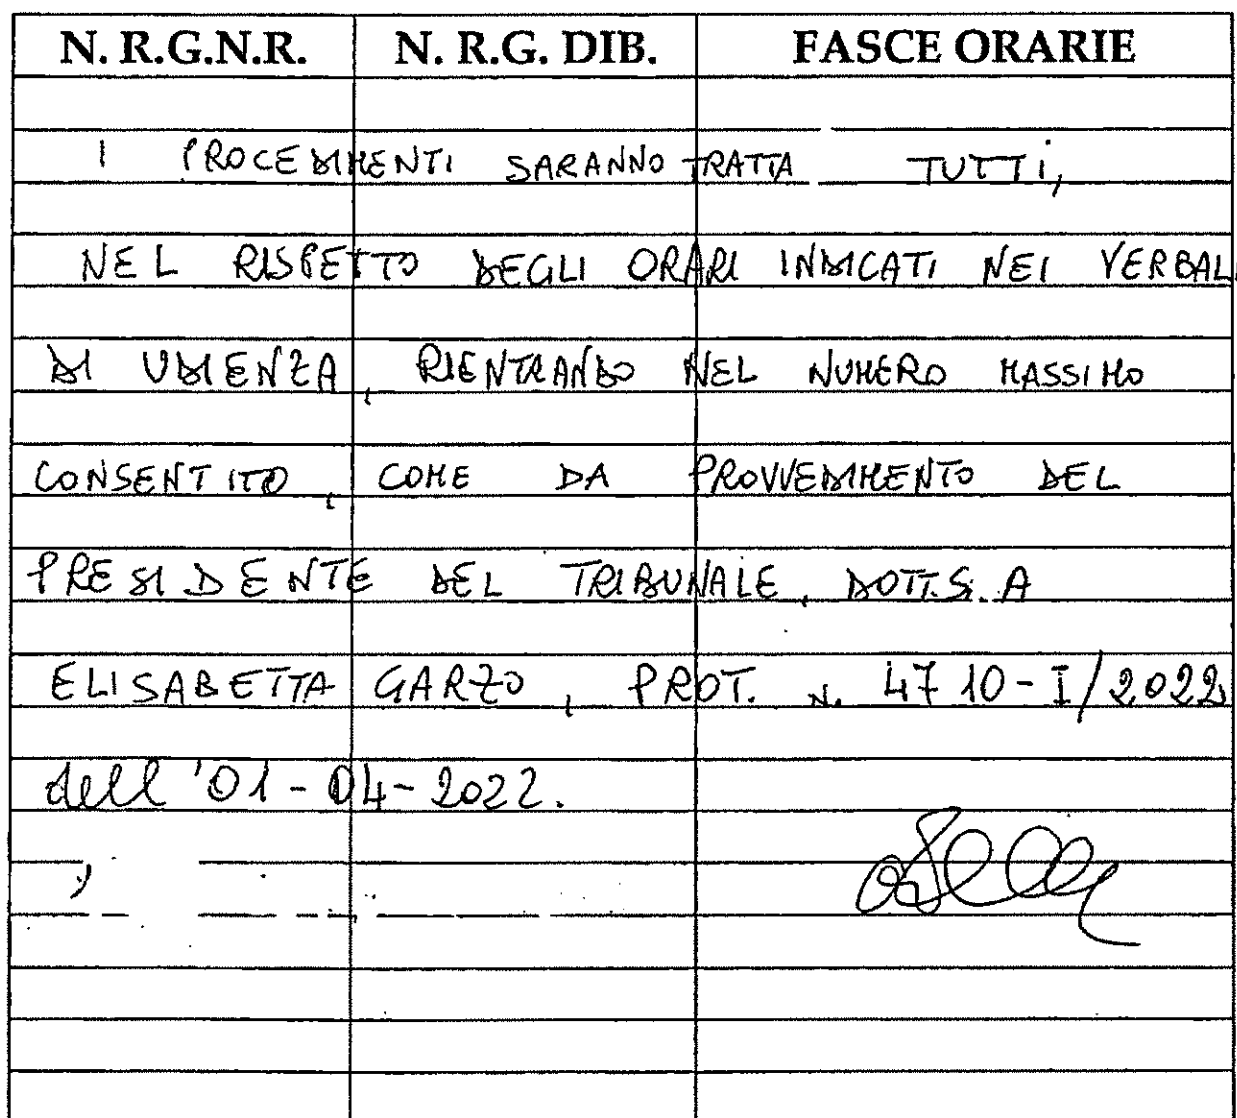 N. R.G.N.R. N. R.G. DIB. FASCE ORARIE
I PROCEDIMENTI SARANNO TRATTA TUTTI,
NEL RISPETTO DEGLI ORARI INDICATI NEI VERBALI
DI UDIENZA, RIENTRANDO NEL NUMERO MASSIMO
CONSENTITO, COME DA PROVVEDIMENTO DEL
PRESIDENTE DEL TRIBUNALE, DOTT.S.A
ELISABETTA GARZO, PROT. N. 4710-I/2022
dell'01-04-2022.